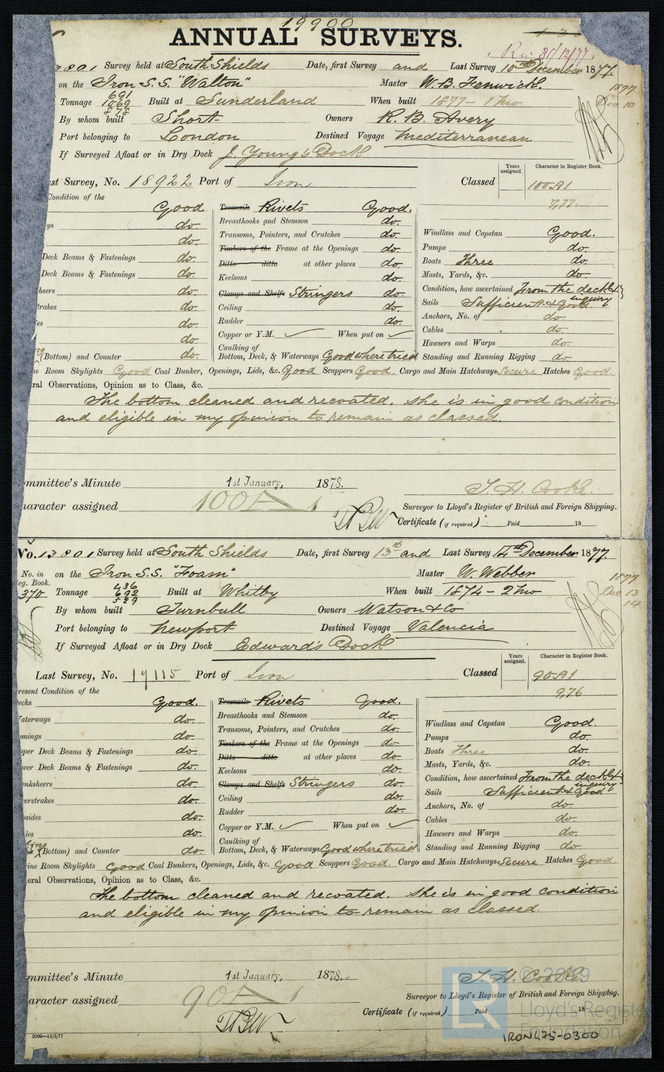 19900
ANNUAL SURVEYS.
Rec 31/12/77
3801 Survey held at South Shields Date, first Survey and Last Survey 10th December 1877
on the Iron S.S. "Walton" Master W. B. Fenwick.
1877
Dec 10
691
Tonnage 1069 Built at Sunderland When built 1877 - 1 mo
By whom built Short Owners R. B. Avery
Port belonging to London Destined Voyage Mediterranean
If Surveyed Afloat or in Dry Dock J. Young's Dock
Years assigned. Character in Register Book.
st Survey, No. 18922 Port of Iron Classed 100A1
7,77
Condition of the
Good Treenails Rivets Good.
ys do. Breasthooks and Stemson do.
do. Transoms, Pointers, and Crutches do. Windlass and Capstan Good.
do. Timbers of the Frame at the Openings do. Pumps do.
Deck Beams & Fastenings do. Ditto ditto at other places do. Boats Three do.
Deck Beams & Fastenings do. Keelsons do. Masts, Yards, &c. do.
heers do. Clamps and Shelfs Stringers do. Condition, how ascertained From the deck & inquiry
trakes do. Ceiling do. Sails Sufficient & good
es do. Rudder do. Anchors, No. of do.
do. Copper or Y.M. ✓ When put on ✓ Cables do.
Caulking of Hawsers and Warps do.
(Bottom) and Counter do. Bottom, Deck, & Waterways Good where tried Standing and Running Rigging do.
ne Room Skylights Good Coal Bunker, Openings, Lids, &c. Good Scuppers Good. Cargo and Main Hatchways Secure Hatches Good
ral Observations, Opinion as to Class, &c.
The bottom cleaned and recoated. She is in good condition
and eligible in my opinion to remain as classed.
mmittee's Minute 1st January, 1878.
aracter assigned 100A1
T. H. Cooke
Surveyor to Lloyd's Register of British and Foreign Shipping.
Certificate (if required) : Paid 18
No. 13801 Survey held at South Shields Date, first Survey 13th and Last Survey 14th December 1877.
No. in eg. Book. on the Iron S.S. "Foam" Master W. Webber
1877
Dec 13
14
436
370 Tonnage 692 Built at Whitby When built 1874 - 2 mo
539
By whom built Turnbull Owners Watson & Co
Port belonging to Newport Destined Voyage Valencia
If Surveyed Afloat or in Dry Dock Edward's Dock
Years assigned. Character in Register Book.
Last Survey, No. 19115 Port of Iron Classed 90A1
9,76
resent Condition of the
ecks Good. Treenails Rivets Good.
aterways do. Breasthooks and Stemson do. Windlass and Capstan Good.
omings do. Transoms, Pointers, and Crutches do. Pumps do.
pper Deck Beams & Fastenings do. Timbers of the Frame at the Openings do. Boats Three do.
wer Deck Beams & Fastenings do. Ditto ditto at other places do. Masts, Yards, &c. do.
anksheers do. Keelsons do. Condition, how ascertained From the deck & inquiry
verstrakes do. Clamps and Shelfs Stringers do. Sails Sufficient & Good
sides do. Ceiling do. Anchors, No. of do.
les do. Rudder do. Cables do.
Copper or Y.M. ✓ When put on ✓ Hawsers and Warps do.
Caulking of
(Bottom) and Counter do. Bottom, Deck, & Waterways Good where tried Standing and Running Rigging do.
ine Room Skylights Good Coal Bunkers, Openings, Lids, &c. Good Scuppers Good. Cargo and Main Hatchways Secure Hatches Good
eral Observations, Opinion as to Class, &c.
The bottom cleaned and recoated. She is in good condition
and eligible in my opinion to remain as classed.
mmittee's Minute 1st January, 1878.
aracter assigned 90A1
T. H. Cooke
Surveyor to Lloyd's Register of British and Foreign Shipping.
Certificate (if required) Paid 18
© 2019
Lloyd's Register
Foundation
2000—12/3/77
IRON475-0300